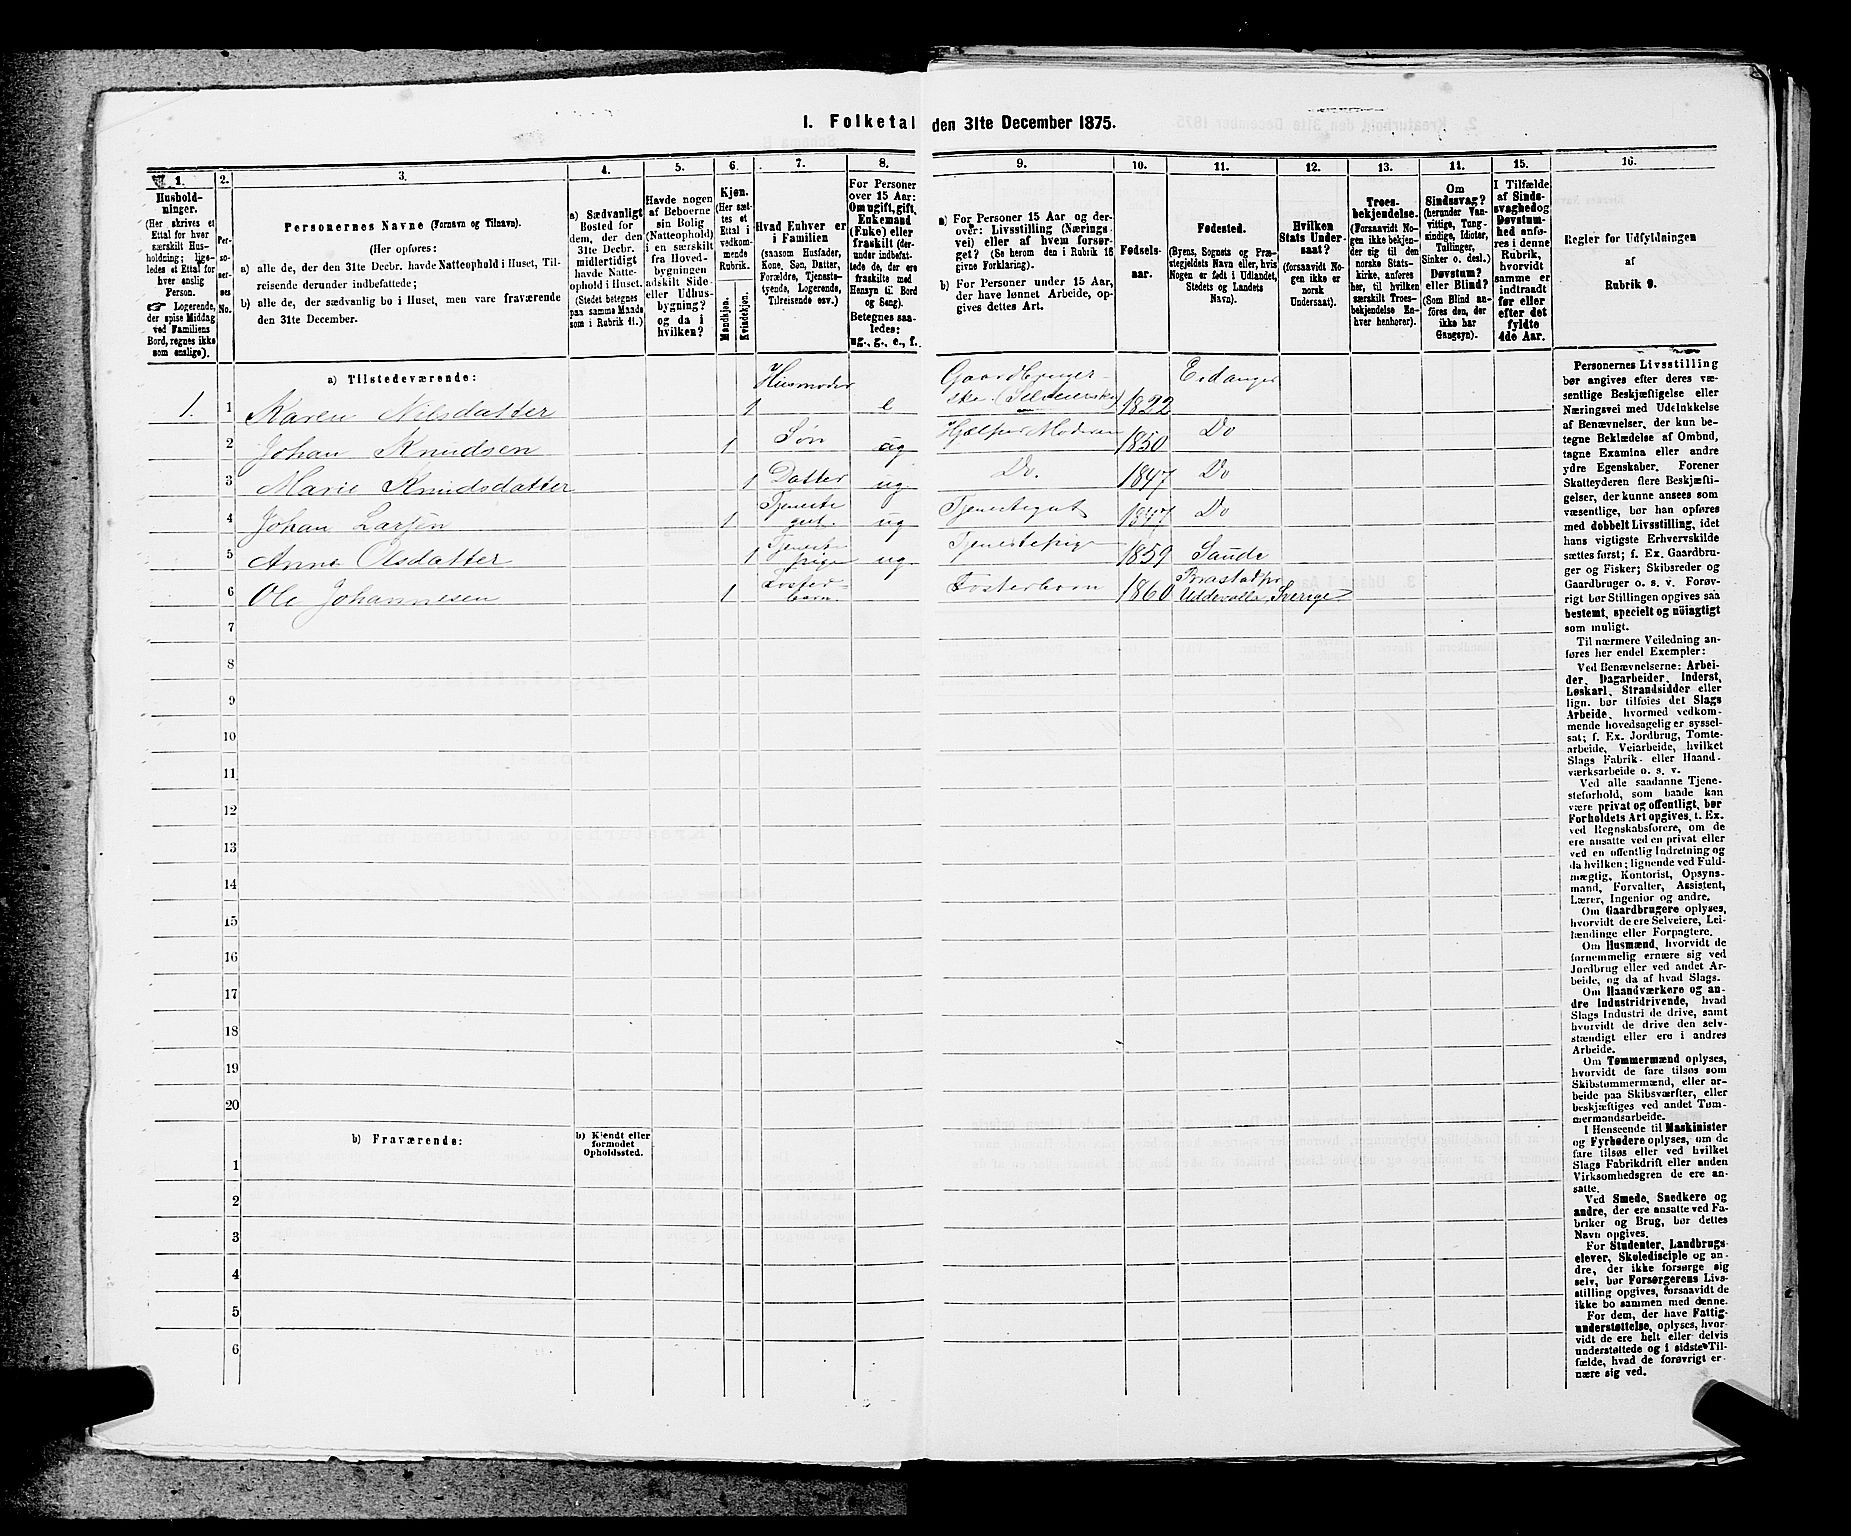 I. Folketal den 31te December 1875.
1.
Husholdninger.
(Her skrives et
Ettal for hver
særskilt Husholdning;
ligeledes et Ettal for
hver enslig
Person.
☞ Logerende,
der spise Middag
ved Familiens
Bord, regnes ikke
som enslige).
2.
Personernes
No.
3.
Personernes Navne (Fornavn og Tilnavn).
(Her opføres:
a) alle de, der den 31te Decbr. havde Natteophold i Huset, Tilreisende
derunder indbefattede;
b) alle de, der sædvanlig bo i Huset, men vare fraværende
den 31te December.
4.
a) Sædvanligt
Bosted for
dem, der den
31te Decbr.
midlertidigt
havde Natteophold
i Huset.
(Stedet betegnes
paa samme Maade
som i Rubrik 11.)
5.
Havde nogen
af Beboerne
sin Bolig
(Natteophold)
i en særskilt
fra Hovedbygningen
adskilt Side-
eller Udhusbygning?
og da i
hvilken?
6.
Kjøn.
(Her sættes
et
Ettal i
vedkommende
Rubrik.
Mandkjøn.
Kvindekjøn.
7.
Hvad Enhver er
i Familien
(saasom Husfader,
Kone, Søn, Datter,
Forældre, Tjenestetyende,
Logerende,
Tilreisende osv.)
8.
For Personer
over 15 Aar:
Om ugift, gift,
Enkemand
(Enke) eller
fraskilt (derunder
indbefattede
de, der ere
fraskilte med
Hensyn til Bord
og Seng).
Betegnes saaledes:
ug., g., e., f.
9.
a) For Personer 15 Aar og derover:
Livsstilling (Næringsvei)
eller af hvem forsørget?
(Se herom den i Rubrik 16
givne Forklaring).
b) For Personer under 15 Aar,
der have lønnet Arbeide, opgives
dettes Art.
10.
Fødselsaar.
11.
Fødested.
(Byens, Sognets og Præstegjeldets
Navn eller, hvis
Nogen er født i Udlandet,
Stedets og Landets
Navn).
12.
Hvilken
Stats Undersaat?
(forsaavidt Nogen
ikke er
norsk
Undersaat).
13.
Troesbekjendelse.
(Forsaavidt Nogen
ikke bekjender
sig til den
norske Statskirke,
anføres
her, til hvilken
særskilt Troesbekjendelse
Enhver
henhører).
14.
Om
Sindssvag?
(herunder Vanvittige,
Tungsindige,
Idioter,
Tullinger,
Sinker o. desl.)
Døvstum?
eller Blind?
(Som Blind anføres
den, der
ikke har
Gangsyn).
15.
I Tilfælde
af Sindssvaghed
og
Døvstumhed
anføres
i denne
Rubrik,
hvorvidt
samme er
indtraadt
før eller
efter det
fyldte
4de Aar.
16.
Regler for Udfyldningen
af
Rubrik 9.
a) Tilstedeværende:
1. 1 Karen Nilsdatter 1 Husmoder e Gaardbrugerske (Selveierske) 1822 Eidanger
2 Johan Knudsen 1 Søn ug Hjælper Moderen 1850 Do
3 Marie Knudsdatter 1 Datter ug Do. 1847 Do
4 Johan Larsen 1 Tjenestegut. ug Tjenestegut 1847 Do
5 Anne Olsdatter 1 Tjenestepige ug Tjenestepige 1859 Saude
6 Ole Johannesen 1 Fosterbarn Fosterbarn 1860 Uddevalla, Sverige
7
8
9
10
11
12
13
14
15
16
17
18
19
20
b) Fraværende:
b) Kjendt eller
formodet
Opholdssted.
1
2
3
4
5
6
Personernes Livsstilling
bør angives efter deres væsentlige
Beskjæftigelse eller
Næringsvei med Udelukkelse
af Benævnelser, der kun betegne
Beklædelse af Ombud,
tagne Examina eller andre
ydre Egenskaber. Forener
Skatteyderen flere Beskjæftigelser,
der kunne ansees som
væsentlige, bør han opføres
med dobbelt Livsstilling, idet
hans vigtigste Erhvervskilde
sættes først; f. Ex. Gaardbruger
og Fisker; Skibsreder og
Gaardbruger o. s. v. Forøvrigt
bør Stillingen opgives saa
bestemt, specielt og nøiagtigt
som muligt.
Til nærmere Veiledning anføres
her endel Exempler:
Ved Benævnelserne: Arbeider,
Dagarbeider, Inderst,
Løskarl, Strandsidder eller
lign. bør tilføies det Slags
Arbeide, hvormed vedkommende
hovedsagelig er sysselsat;
f. Ex. Jordbrug, Tomtearbeide,
Veiarbeide, hvilket
Slags Fabrik- eller Haandværksarbeide
o. s. v.
Ved alle saadanne Tjenesteforhold,
som baade kan
være privat og offentligt, bør
Forholdets Art opgives, t. Ex.
ved Regnskabsførere, om de
ere ansatte ved en privat eller
ved en offentlig Indretning og
da hvilken; lignende ved Fuldmægtig,
Kontorist, Opsynsmand,
Forvalter, Assistent,
Lærer, Ingeniør og andre.
Om Gaardbrugere oplyses,
hvorvidt de ere Selveiere, Leilændinge
eller Forpagtere.
Om Husmænd, hvorvidt de
fornemmelig ernære sig ved
Jordbrug eller ved andet Arbeide,
og da af hvad Slags.
Om Haandværkere og andre
Industridrivende, hvad
Slags Industri de drive, samt
hvorvidt de drive den selvstændigt
eller ere i andres
Arbeide.
Om Tømmermænd oplyses,
hvorvidt de fare tilsøs som
Skibstømmermænd, eller arbeide
paa Skibsværfter, eller
beskjæftiges ved andet Tømmermandsarbeide.
I Henseende til Maskinister
og Fyrbødere oplyses, om de
fare tilsøs eller ved hvilket
Slags Fabrikdrift eller anden
Virksomhedsgren de ere ansatte.
Ved Smede, Snedkere og
andre, der ere ansatte ved Fabriker
og Brug, bør dettes
Navn opgives.
For Studenter, Landbrugselever,
Skoledisciple og andre,
der ikke forsørge sig
selv, bør Forsørgerens Livsstilling
opgives, forsaavidt de
ikke bo sammen med denne.
For dem, der have Fattigunderstøttelse,
oplyses, hvorvidt
de ere helt eller delvis
understøttede og i sidste Tilfælde,
hvad de forøvrigt ernære
sig ved.